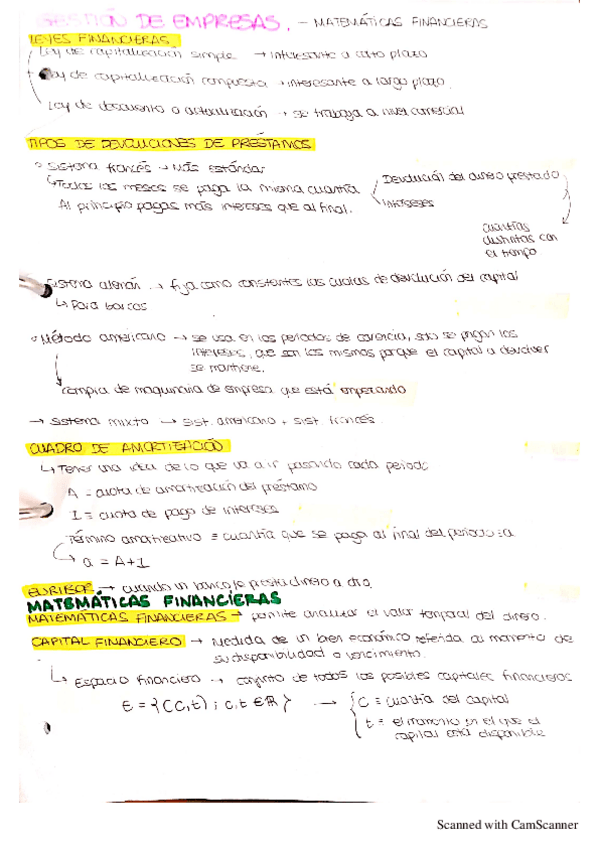 GESTIÓN DE EMPRESAS. - MATEMÁTICAS FINANCIERAS
LEYES FINANCIERAS
Ley de capitalización simple → interesante a corto plazo
Ley de capitalización compuesta → interesante a largo plazo.
Ley de descuento o actualización → se trabaja a nivel comercial
TIPOS DE DEVOLUCIONES DE PRÉSTAMOS
Sistema francés → Más estándar
↳ Todos los meses se paga la misma cuantía
Devolución del dinero prestado
Intereses
Al principio pagas más intereses que al final.
cuantías
distintas con
el tiempo
Sistema alemán → fija como constantes las cuotas de devolución del capital
↳ Para barcos
Método americano → se usa en los periodos de carencia, solo se pagan los
intereses, que son los mismos porque el capital a devolver
se mantiene.
compra de maquinaria de empresa que está empezando
→ Sistema mixto → Sist. americano + sist. francés.
CUADRO DE AMORTIZACIÓN
↳ Tener una idea de lo que va a ir pasando cada periodo
A = cuota de amortización del préstamo
I = cuota de pago de intereses
Término amortizativo = cuantía que se paga al final del periodo: a
↳ a = A+I
EURIBOR → cuando un banco le presta dinero a otro.
MATEMÁTICAS FINANCIERAS
MATEMÁTICAS FINANCIERAS → permite analizar el valor temporal del dinero.
CAPITAL FINANCIERO → Medida de un bien económico referida al momento de
su disponibilidad o vencimiento.
↳ Espacio financiero → conjunto de todos los posibles capitales financieros
E = {(C,t) ; c,t ∈ ℝ} → { C = cuantía del capital
t = el momento en el que el
capital está disponible
Scanned with CamScanner